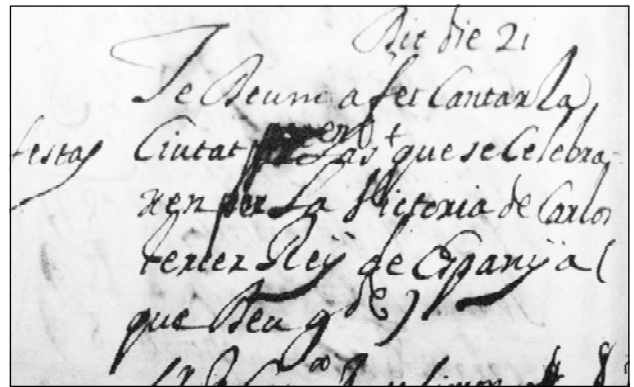 Dit die 21
Te Deum a fet Cantar la
festas Ciutat que se Celebra
ren per La Victoria de Carlos
tercer Reÿ de Espanÿa (
que Deu g.de)